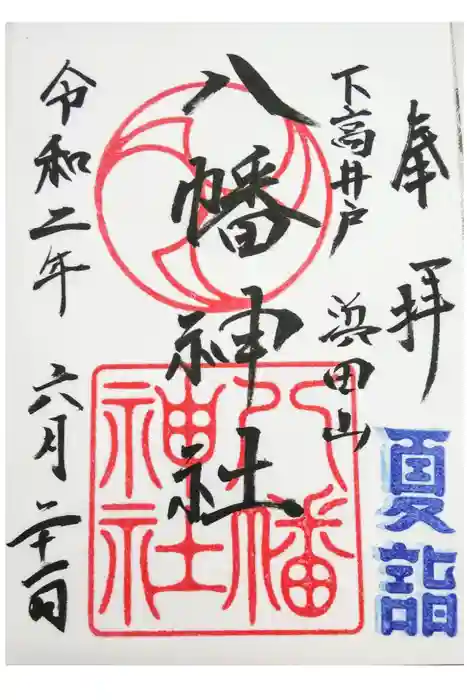 奉拝
夏詣
下高井戸 浜田山
八幡神社
八幡
神社
令和二年 六月二十一日